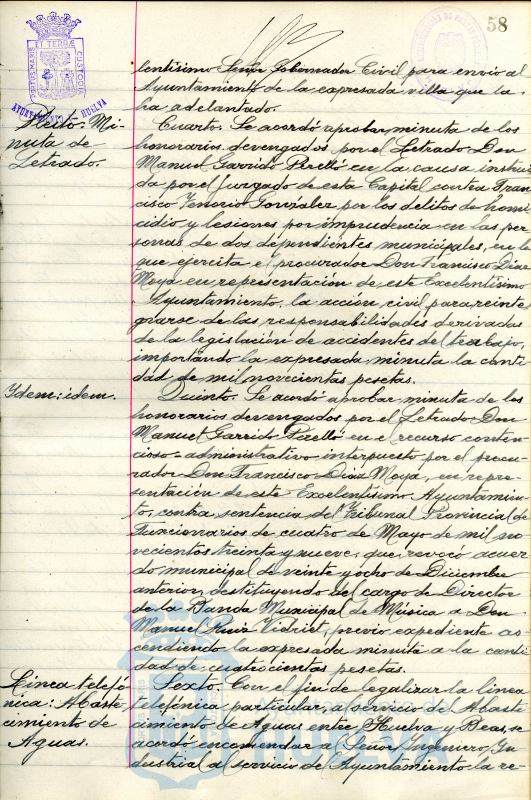 58
PORTUS MARIS ET TERRAE CUSTODIA
AYUNTAMIENTO HUELVA
lentísimo Señor Gobernador Civil para envío al
Ayuntamiento de la expresada villa que la
ha adelantado.
Pleito: Mi-
nuta de
Letrado.
Cuarto. Se acordó aprobar minuta de los
honorarios devengados por el Letrado Don
Manuel Garrido Perelló en la causa instrui-
da por el Juzgado de esta Capital contra Fran-
cisco Tenorio González por los delitos de homi-
cidio y lesiones por imprudencia en las per-
sonas de dos dependientes municipales, en la
que ejercita el procurador Don Francisco Díaz
Moya en representación de este Excelentísimo
Ayuntamiento, la acción civil para reinte-
grarse de las responsabilidades derivadas
de la legislación de accidentes del trabajo,
importando la expresada minuta la canti-
dad de mil novecientas pesetas.
Ydem: idem.
Quinto. Se acordó aprobar minuta de los
honorarios devengados por el Letrado Don
Manuel Garrido Perelló en el recurso conten-
cioso-administrativo interpuesto por el procu-
rador Don Francisco Díaz Moya, en repre-
sentación de este Excelentísimo Ayuntamien-
to, contra sentencia del Tribunal Provincial de
Funcionarios de cuatro de Mayo de mil no-
vecientos treinta y nueve, que revocó acuer-
do municipal de veinte y ocho de Diciembre
anterior, destituyendo del cargo de Director
de la Banda Municipal de Música a Don
Manuel Ruiz Vidriet, previo expediente as-
cendiendo la expresada minuta a la canti-
dad de cuatrocientas pesetas.
Línea telefó-
nica: Abaste-
cimiento de
Aguas.
Sexto. Con el fin de legalizar la línea
telefónica particular al servicio de Abaste-
cimiento de Aguas entre Huelva y Beas, se
acordó encomendar al Señor Ingeniero In-
dustrial al servicio de Ayuntamiento la re-